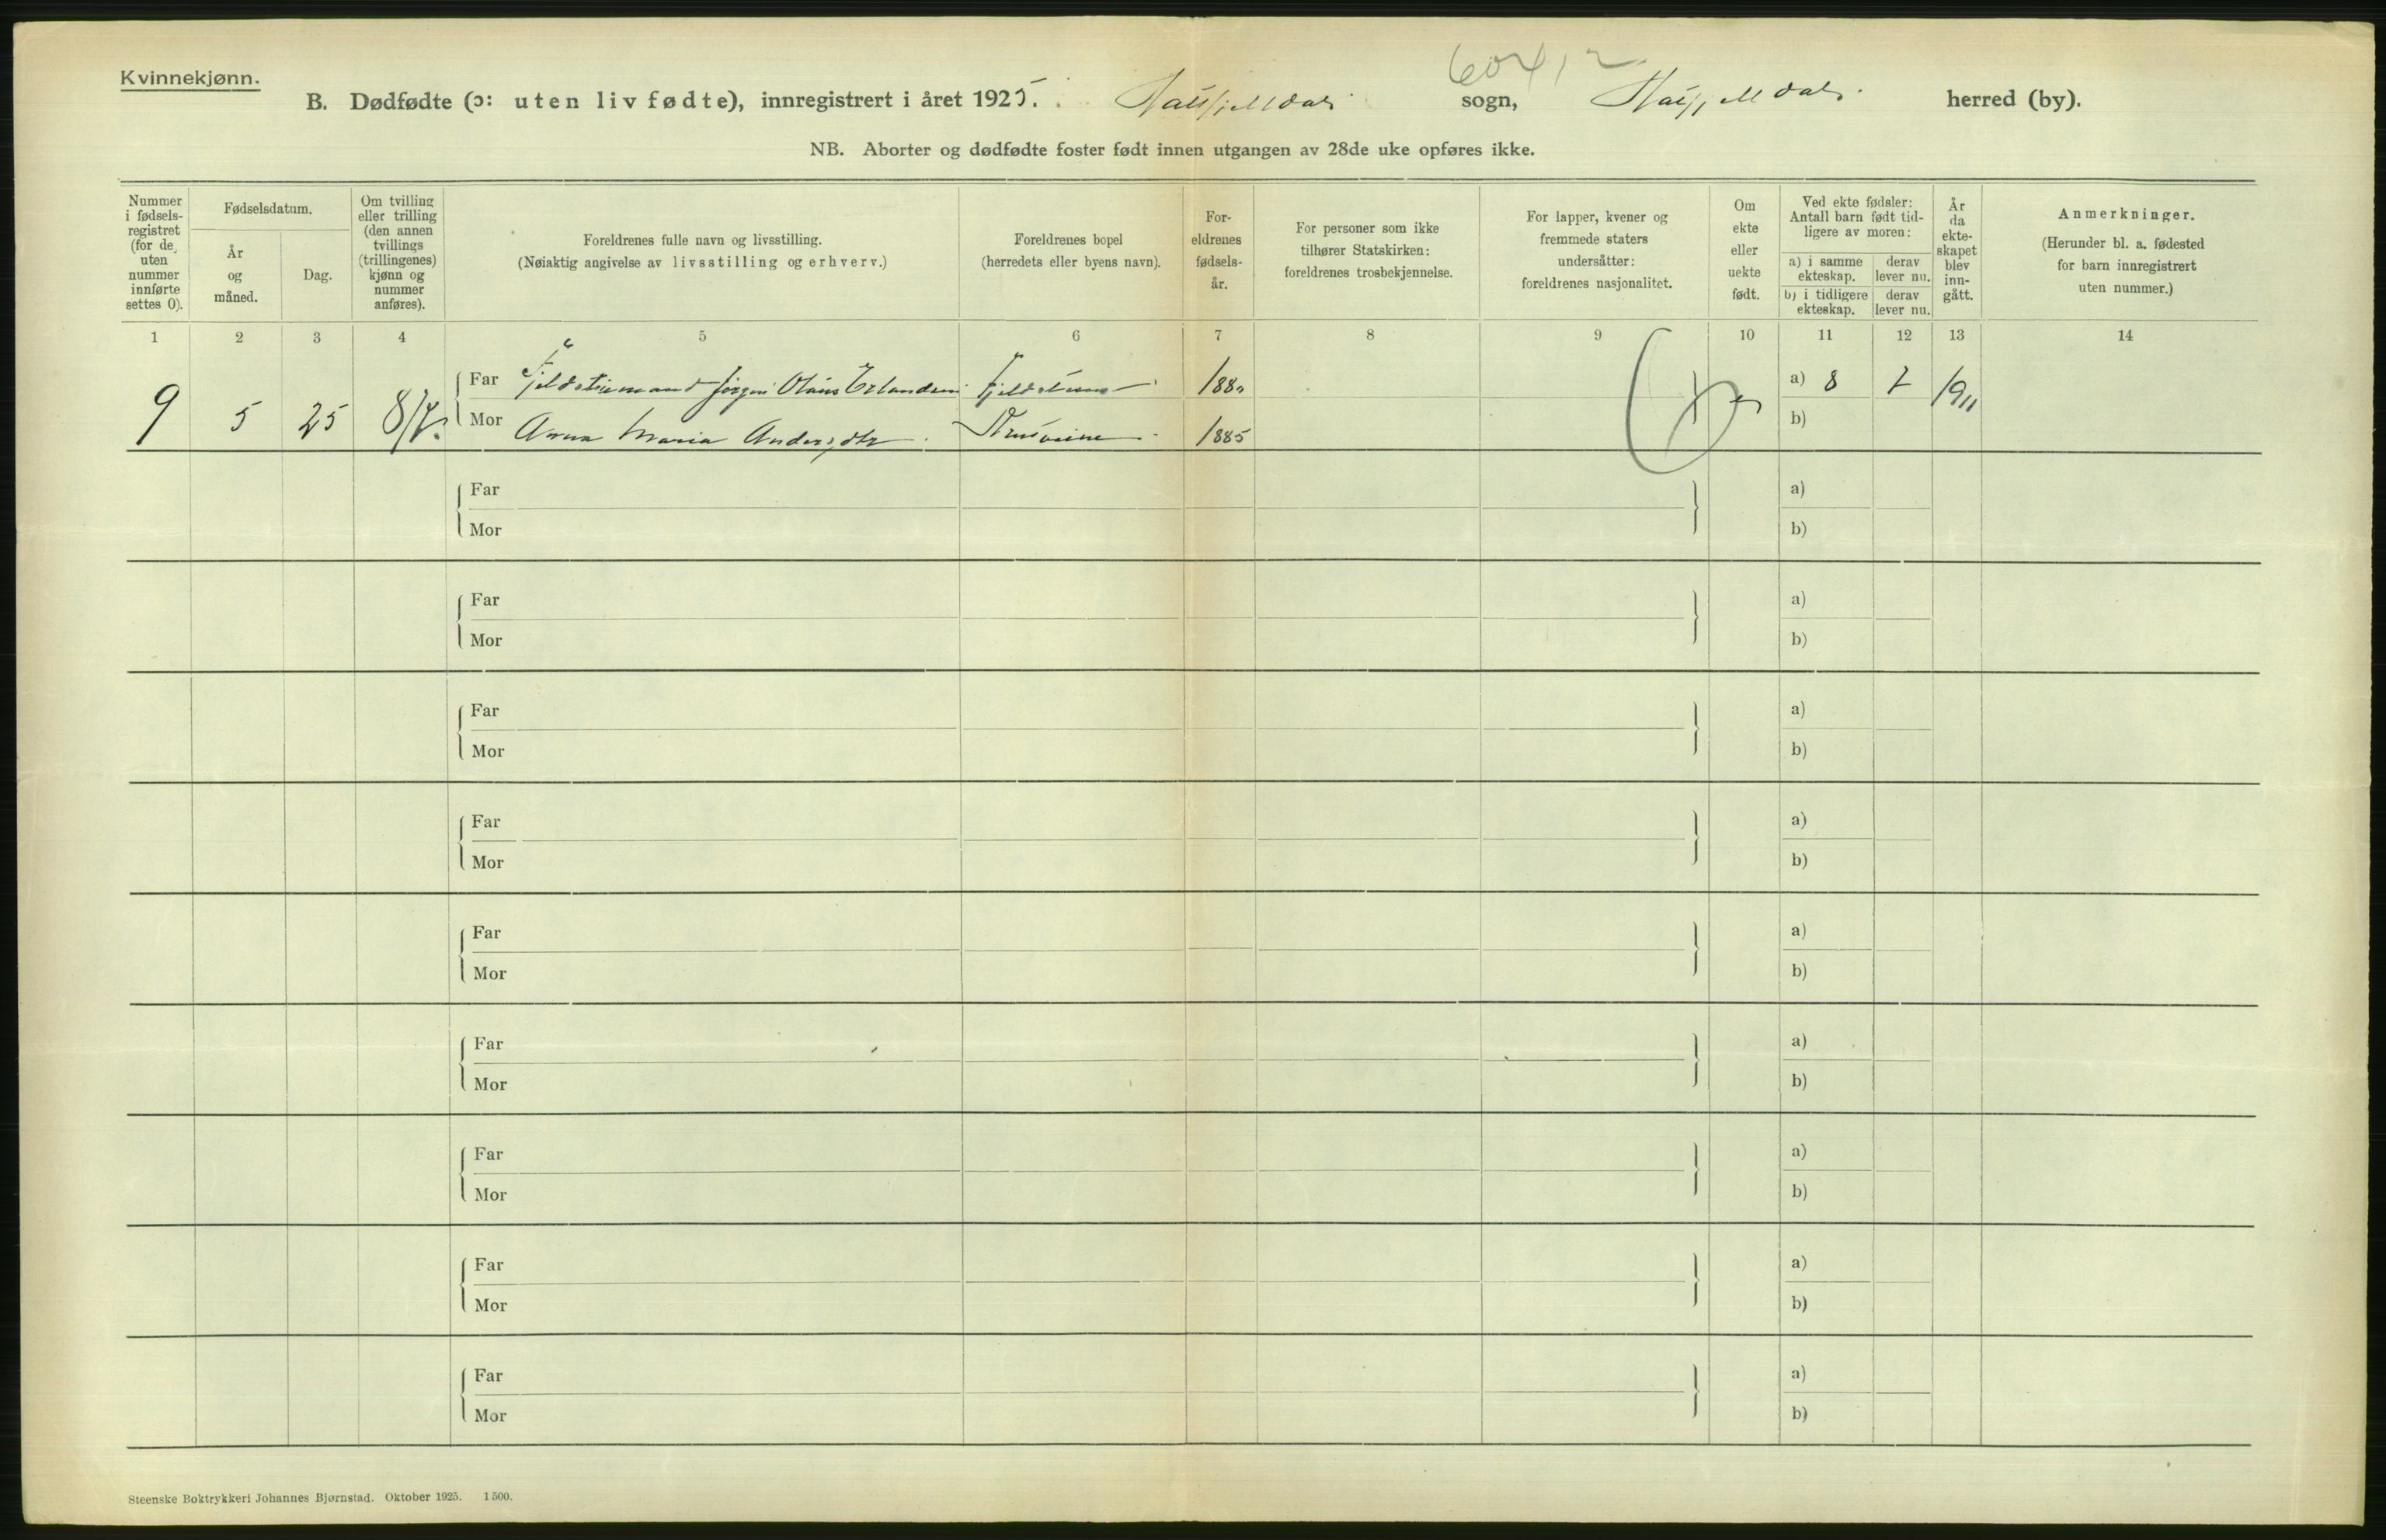 Kvinnekjønn.
60412
B. Dødfødte (ɔ: uten liv fødte), innregistrert i året 1925. Hatfjelldal sogn, Hatfjelldal herred (by).
NB. Aborter og dødfødte foster født innen utgangen av 28de uke opføres ikke.
Nummer i fødsels-registret (for de uten nummer innførte settes 0).
Fødselsdatum.
År og måned.
Dag.
Om tvilling eller trilling (den annen tvillings (trillingenes) kjønn og nummer anføres).
Foreldrenes fulle navn og livsstilling.
(Nøiaktig angivelse av livsstilling og erhverv.)
Foreldrenes bopel
(herredets eller byens navn).
For-eldrenes fødsels-år.
For personer som ikke tilhører Statskirken: foreldrenes trosbekjennelse.
For lapper, kvener og fremmede staters undersåtter: foreldrenes nasjonalitet.
Om ekte eller uekte født.
Ved ekte fødsler: Antall barn født tid-ligere av moren:
a) i samme ekteskap.
derav lever nu.
b) i tidligere ekteskap.
derav lever nu.
År da ekte-skapet blev inn-gått.
Anmerkninger.
(Herunder bl. a. fødested for barn innregistrert uten nummer.)
1 2 3 4 5 6 7 8 9 10 11 12 13 14
Far Jørgen Olaus Erlandsen 1880 a) 8 7 1911
9 5 25 8/4.
Mor Anna Maria Andersdtr. 1885 b)
Far a)
Mor b)
Far a)
Mor b)
Far a)
Mor b)
Far a)
Mor b)
Far a)
Mor b)
Far a)
Mor b)
Far a)
Mor b)
Far a)
Mor b)
Far a)
Mor b)
Steenske Boktrykkeri Johannes Bjørnstad. Oktober 1925. 1500.